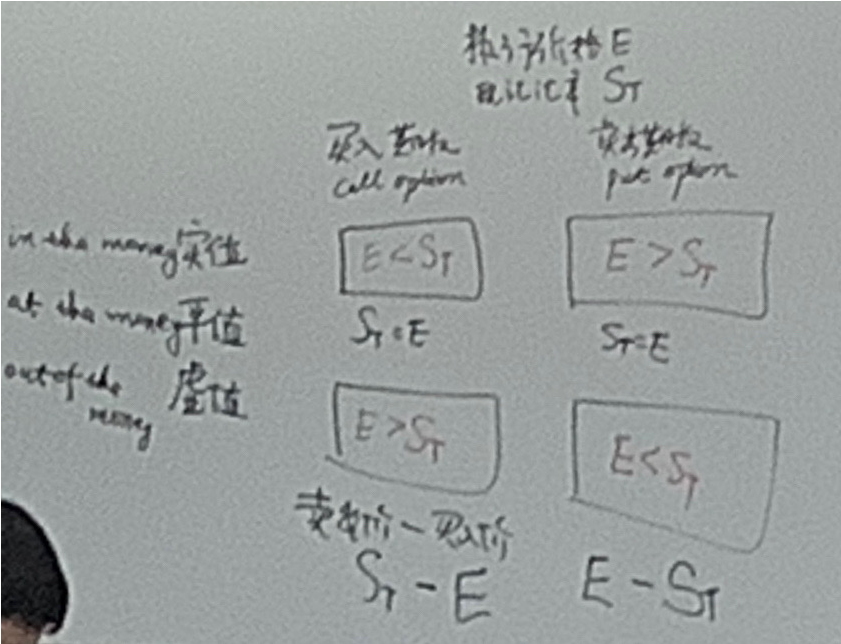 执行价格 E
现汇汇率 S_T
买入期权 卖出期权
call option put option
in the money 实值 E < S_T E > S_T
at the money 平值 S_T = E S_T = E
out of the money 虚值 E > S_T E < S_T
卖出价 - 买入价
S_T - E E - S_T